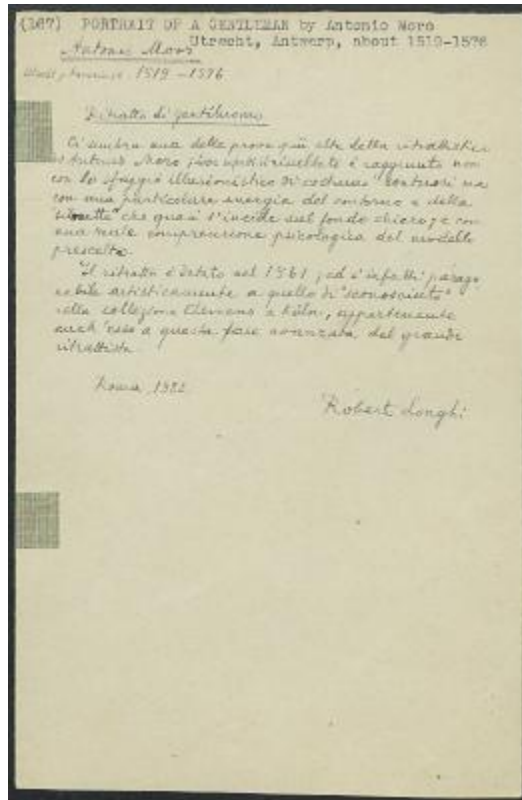 (167) PORTRAIT OF A GENTLEMAN by Antonio Moro
Utrecht, Antwerp, about 1519-1576
Antonio Moro
1519-1576
Ritratto di gentiluomo
Ci sembra una delle prove più alte della ritrattistica
di Antonio Moro; è raggiunta non
con lo sfoggio illusionistico di ma
con una particolare energia del contorno e della
"silouette" che quasi s'incide sul fondo chiaro; e con
una reale comprensione psicologica del modello
prescelto.
Il ritratto è datato nel 1561; ed è infatti parago
nabile artisticamente a quello di "sconosciuto"
nella collezione Clemens a Köln, appartenente
anch'esso a questa fase avanzata del grande
ritrattista.
Roma,
Robert Longhi